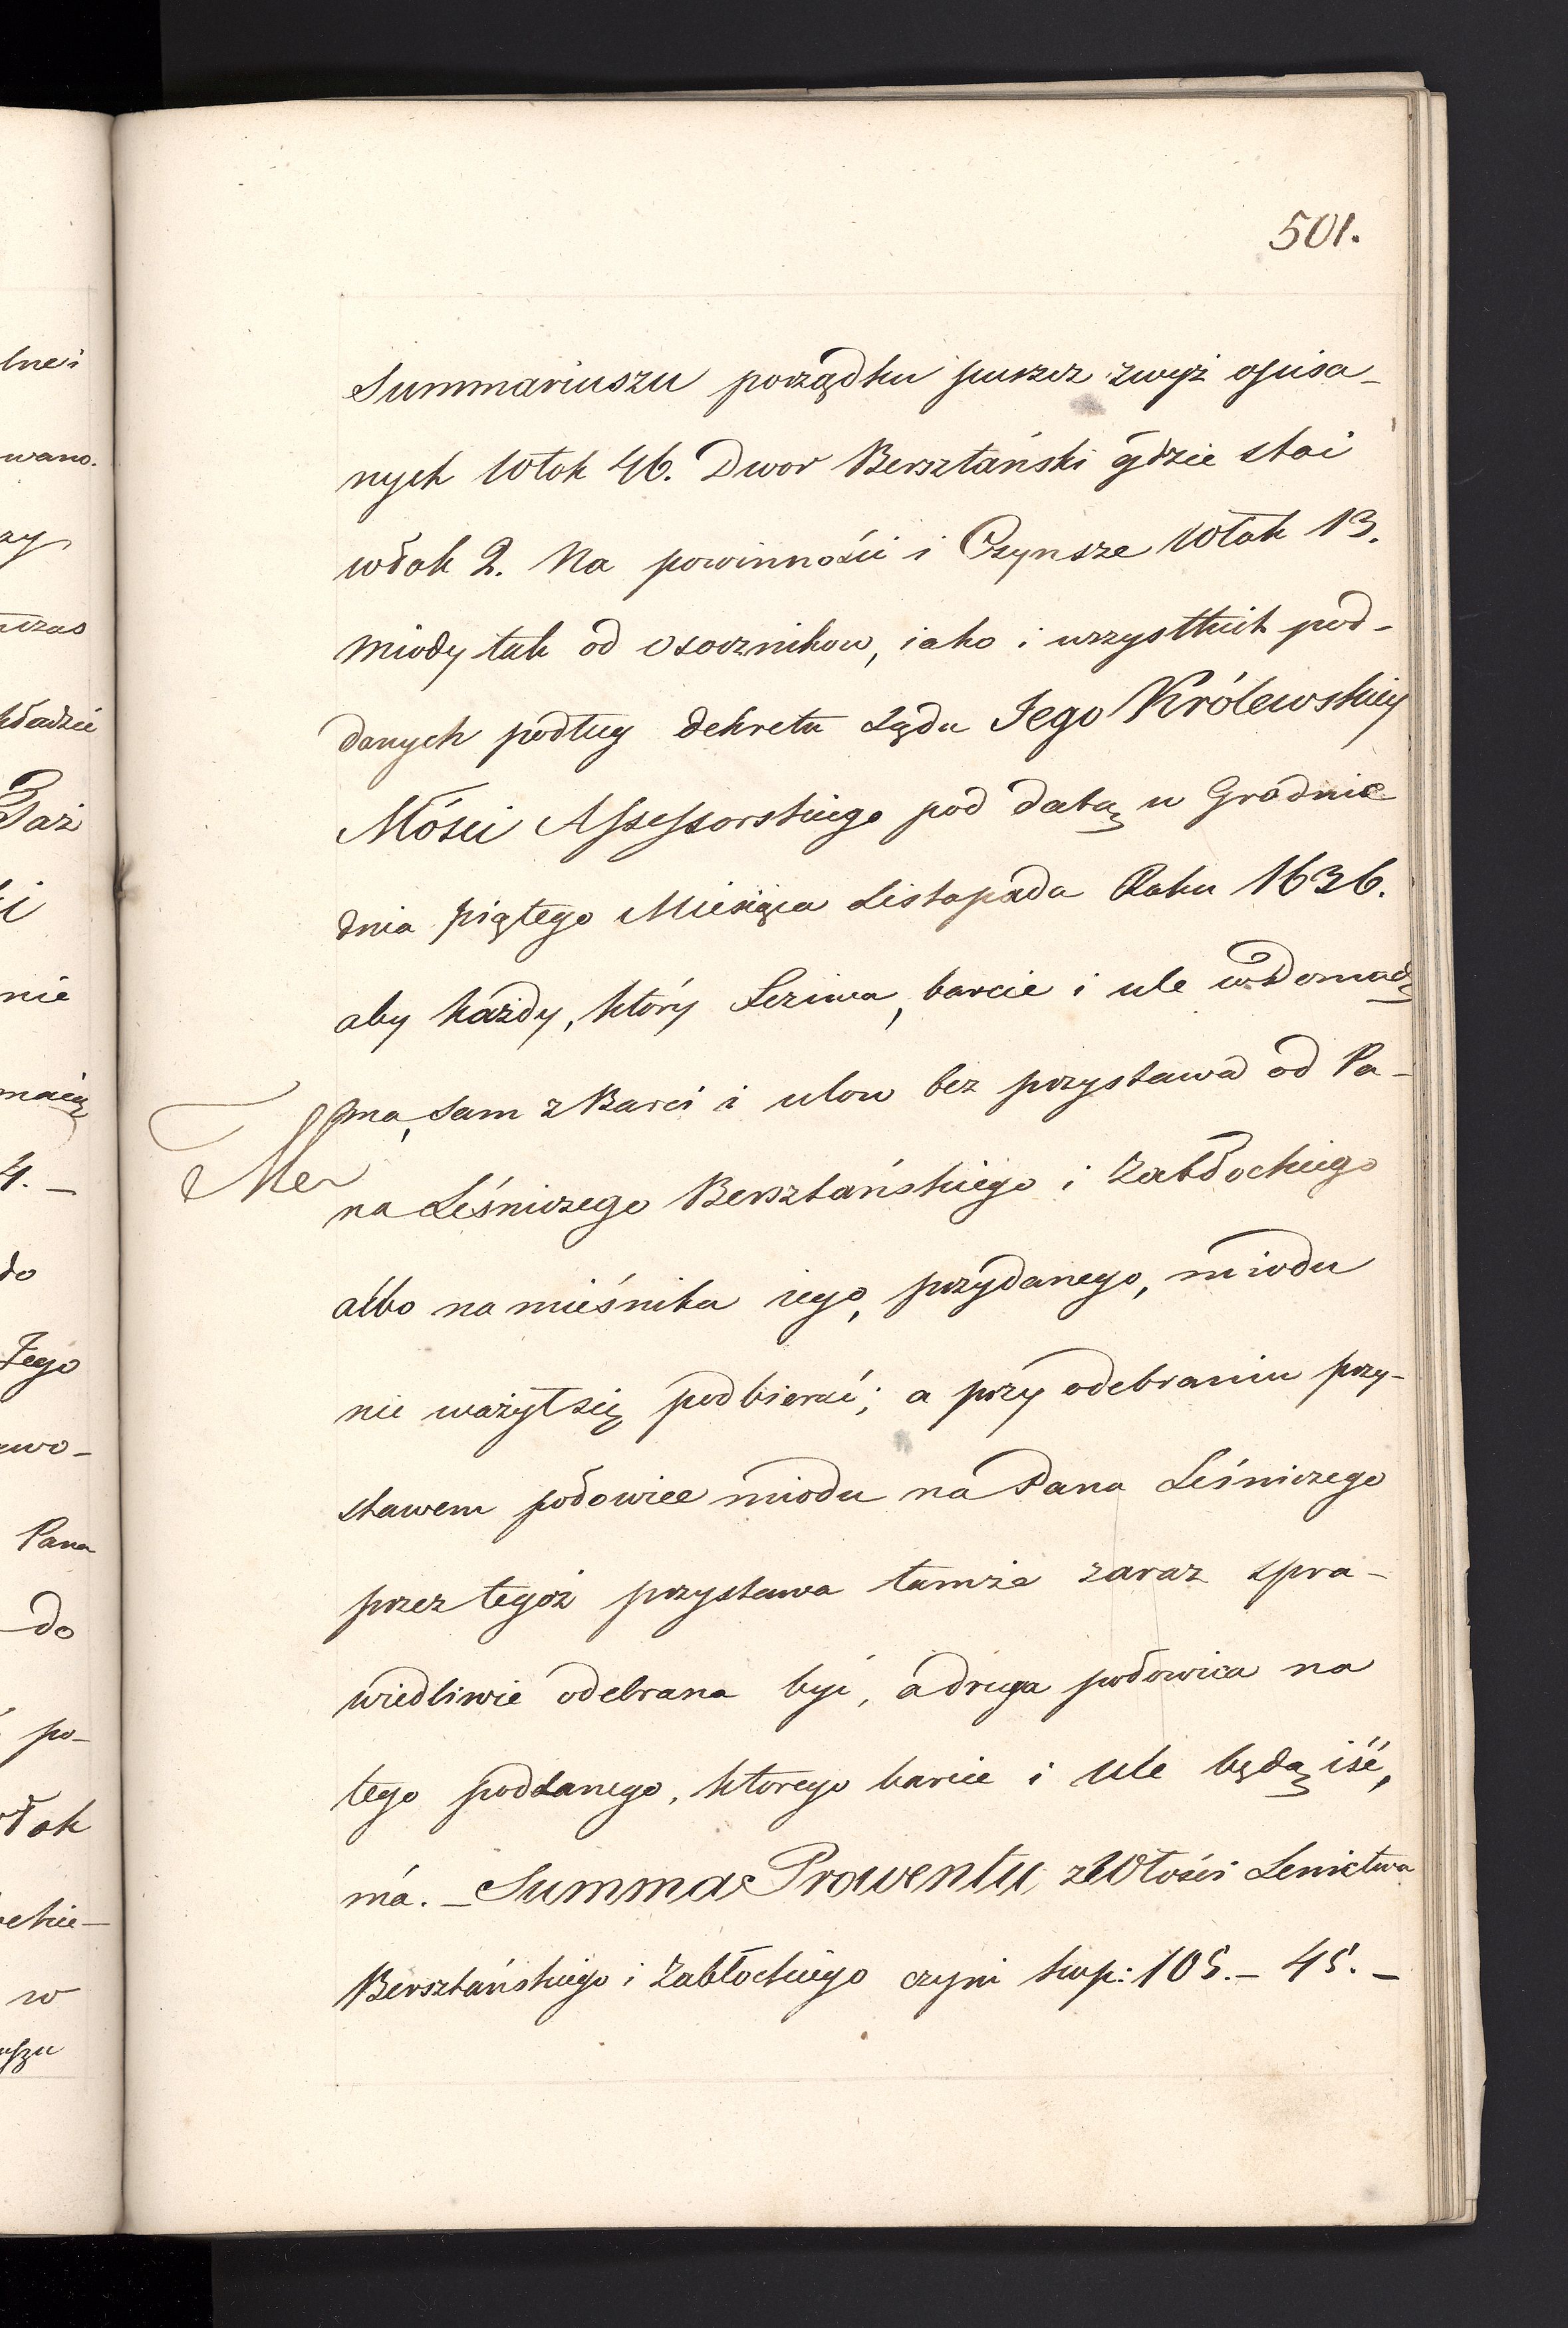 501.
Summariuszu porządku puszcz zwyż opisa-
nych Włok 46. Dwor Bersztański gdzie stoi
włok 2. Na powinności i Czynsze Włok 13.
miody tak od osocznikow, iako i wszystkich pod-
danych podług dekretu Sądu Jego Królewskiey
Mości Assessorskiego pod datą w Grodnie
dnia piątego Miesiąca Listopada Roku 1636.
aby każdy, który Leziwa, barcie i ule w Domach
ma, sam z Barci i ulow bez przystawa od Pa-
na Leśniczego Bersztańskiego i Zabłockiego
albo namieśnika iego, przydanego, miodu
nie ważył się podbierać; a przy odebraniu przy-
stawem połowice miodu na Pana Leśniczego
przez tegoż przystawa tamże zaraz spra-
wiedliwie odebrana być, a druga połowica na
tego poddanego, ktorego barcie i ule będą iść,
má. - Summa Prowentu z Włości Lenictwa
Bersztańskiego i Zabłockiego czyni kop: 105. - 45. -
lnei
wano.
zy
czas
kładzie
Daż
i
nie
maią
4. -
do
Jego
wo-
Pana
do
po-
włok
ckie-
w
uszu